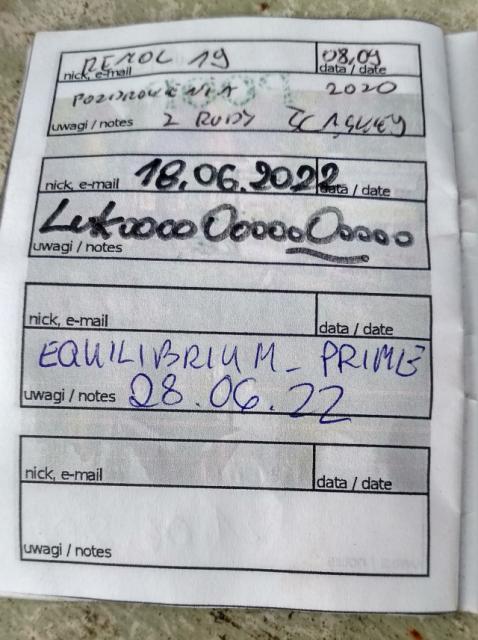 REMOL 19 08,09
nick, e-mail data / date
POZDROWIENIA 2020
uwagi / notes Z RUDY ŚLĄSKIEJ
nick, e-mail 18.06.2022 data / date
uwagi / notes
nick, e-mail data / date
EQUILIBRIUM_PRIME
uwagi / notes 28.06.22
nick, e-mail data / date
uwagi / notes